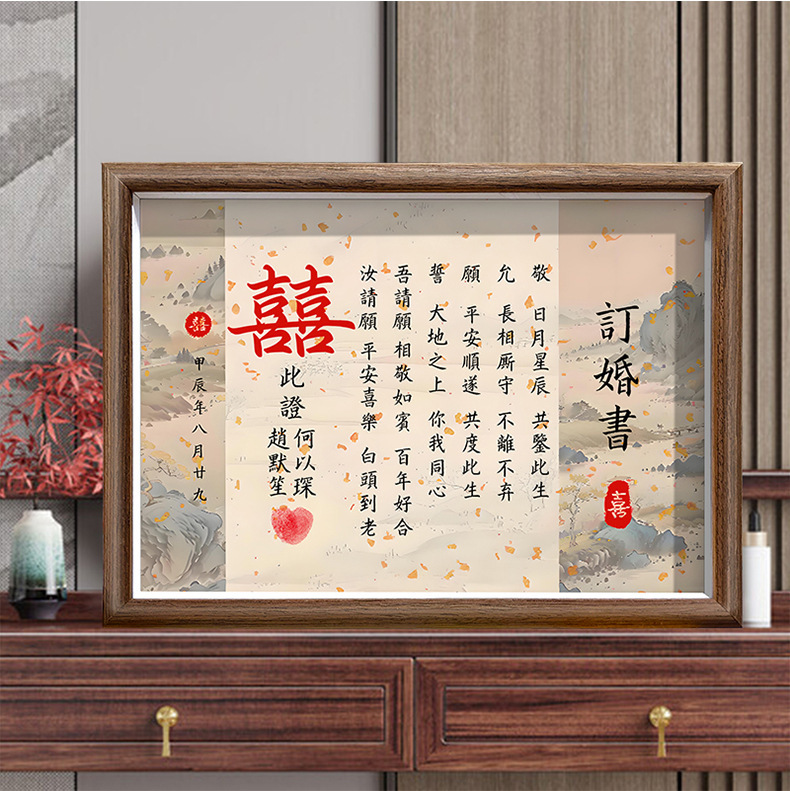 訂婚書
囍
敬 日月星辰 共鑒此生
允 長相厮守 不離不弃
願 平安順遂 共度此生
誓 大地之上 你我同心
吾請願 相敬如賓 百年好合
汝請願 平安喜樂 白頭到老
囍
此證
何以琛
趙默笙
囍
甲辰年八月廿九